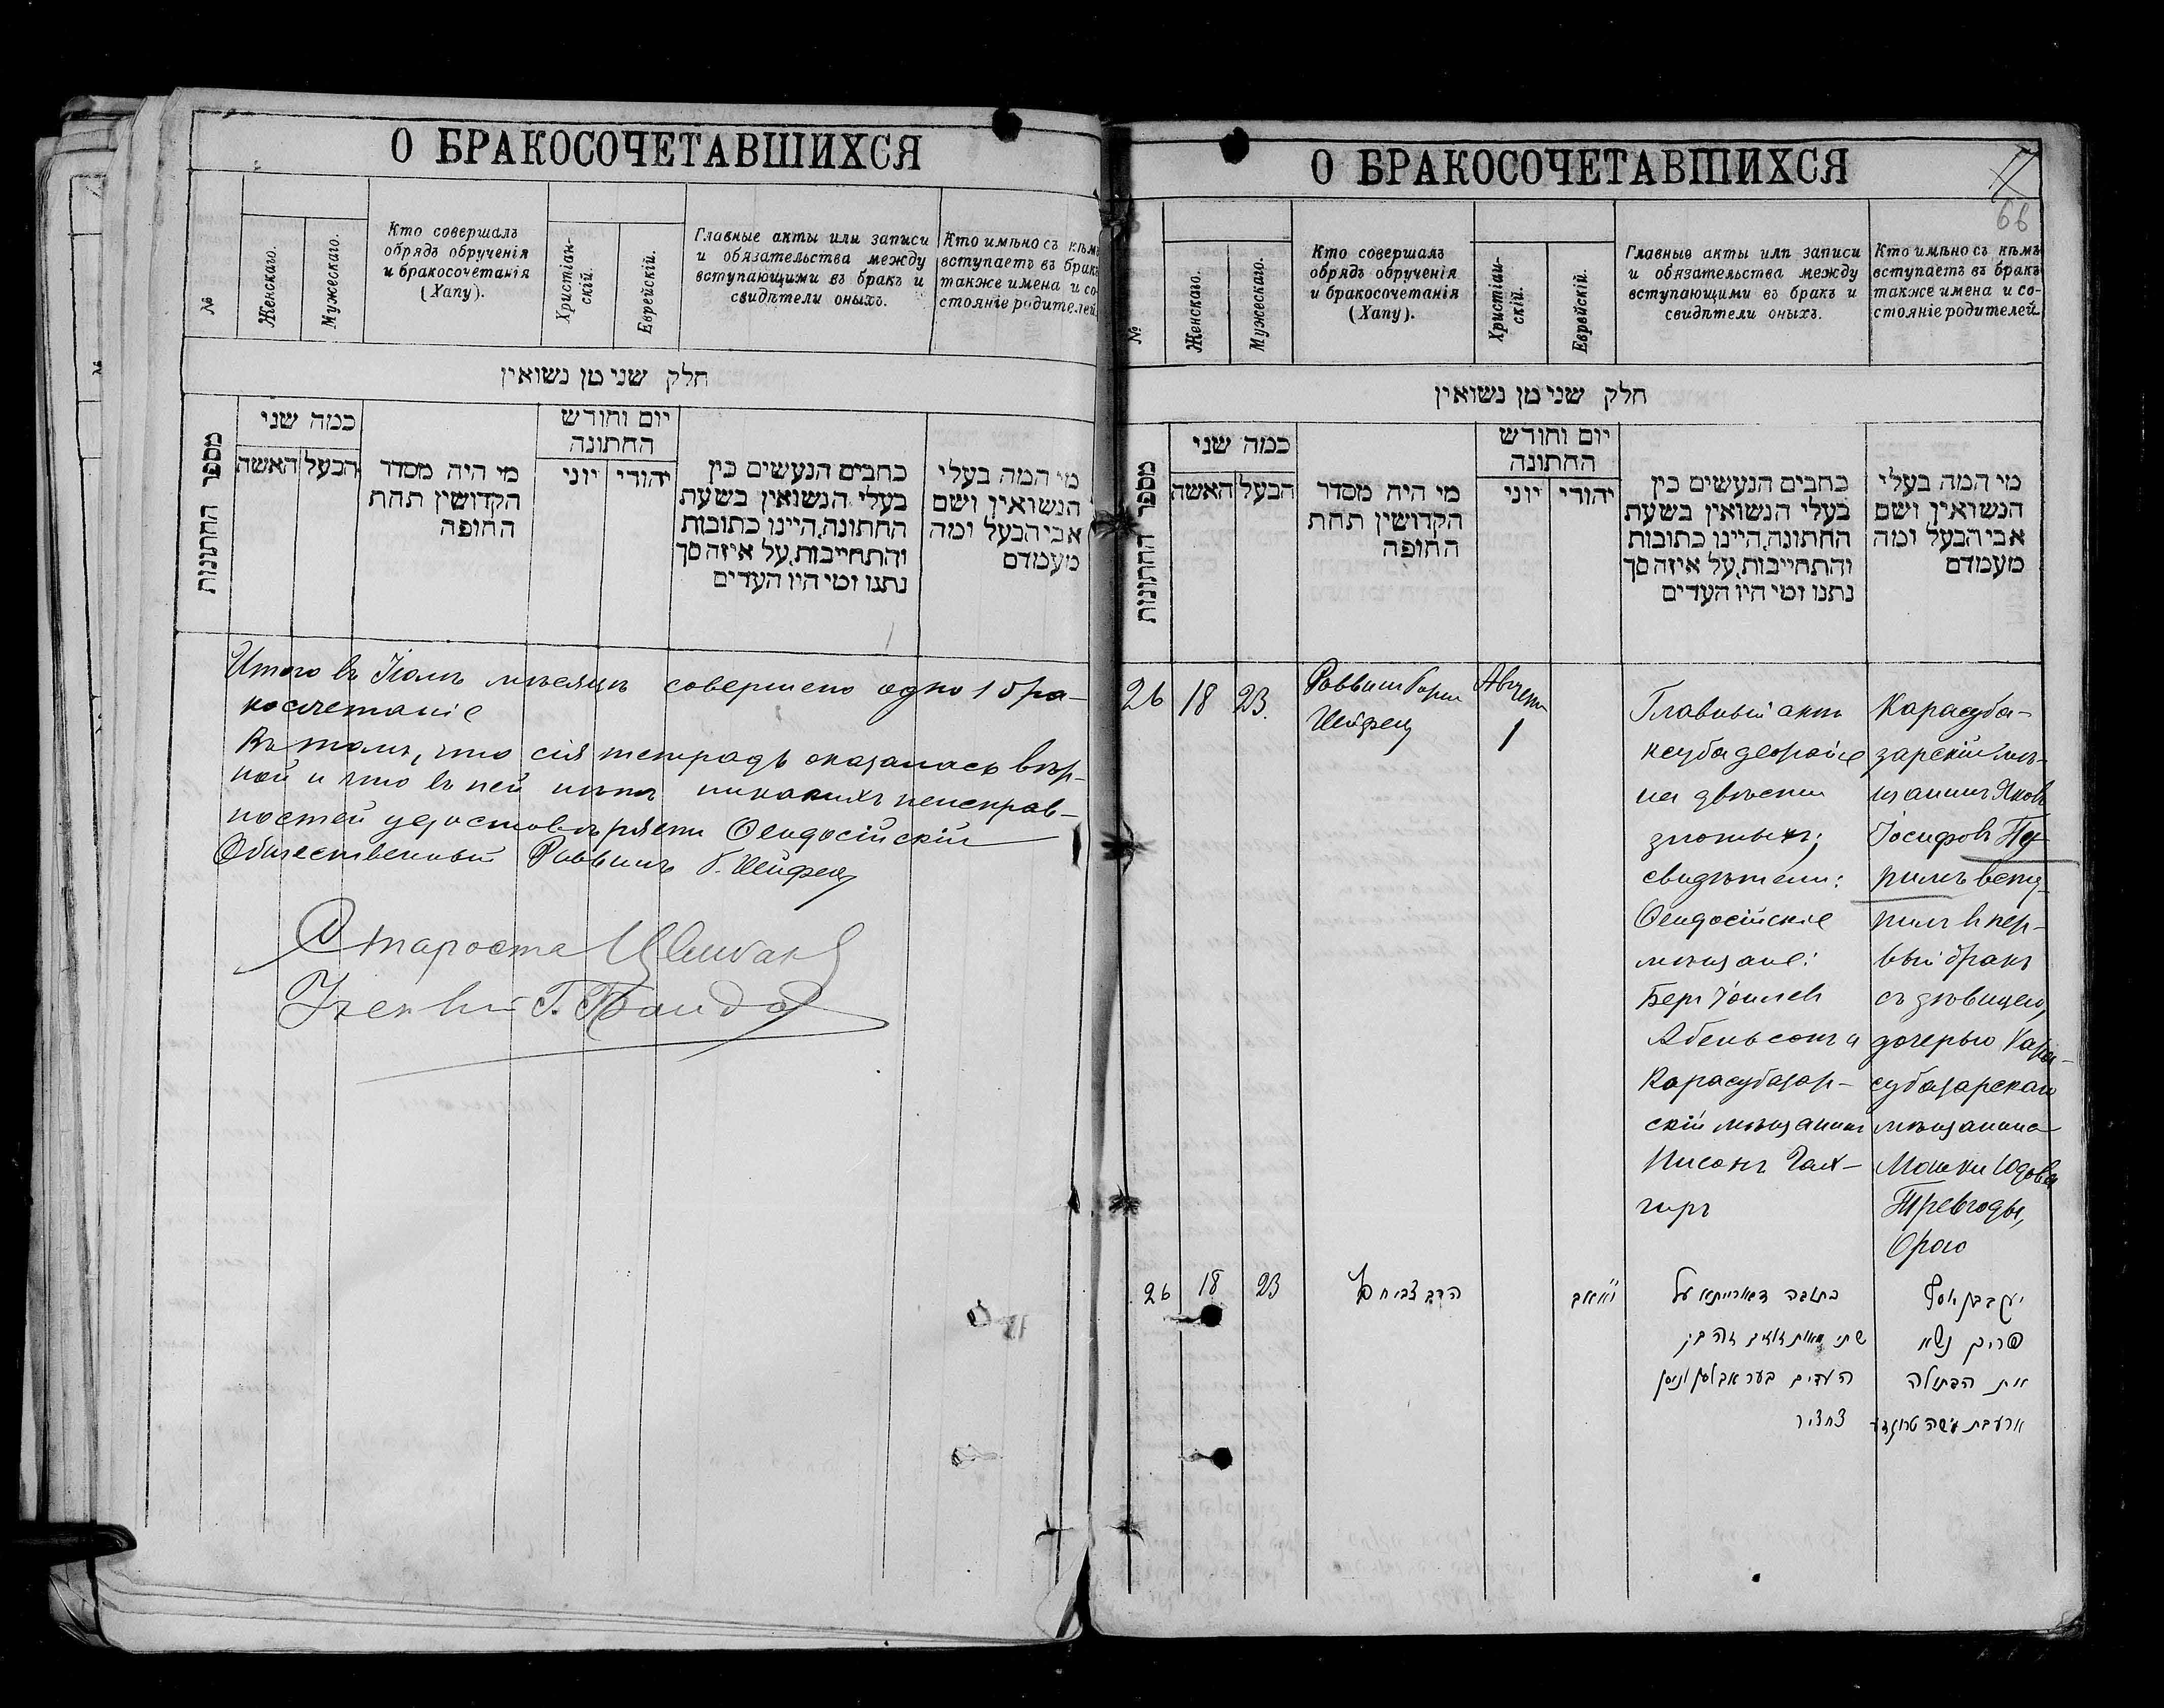 О БРАКОСОЧЕТАВШИХСЯ
№
Женскаго.
Мужескаго.
Кто совершалъ
обрядъ обрученія
и бракосочетанія
(Хапу).
Христіан-
скій.
Еврейскій.
Главные акты или записи
и обязательства между
вступающими въ бракъ и
свидѣтели оныхъ.
Кто имѣно съ кѣмъ
вступаетъ въ бракъ
также имена и со-
стояніе родителей.
חלק שני מן נשואין
מספר החתונות
כמה שני
האשה
הבעל
מי היה מסדר
הקדושין תחת
החופה
יום וחודש
החתונה
יוני
יהודי
כתבים הנעשים בין
בעלי הנשואין בשעת
החתונה, היינו כתובות
והתחייבות, על איזה סך
נתנו ומי היו העדים
מי המה בעלי
הנשואין ושם
אבי הבעל ומה
מעמדם
Итого въ Іюлѣ мѣсяцѣ совершено одно 1 бра-
косочетаніе
Въ томъ, что сія тетрадь оказалась вѣр-
ной и что въ ней нѣтъ никакихъ неисправ-
ностей удостовѣряетъ Ѳеодосійскій
Общественный Раввинъ Б. Шейфец
Староста
О БРАКОСОЧЕТАВШИХСЯ
66
№
Женскаго.
Мужескаго.
Кто совершалъ
обрядъ обрученія
и бракосочетанія
(Хапу).
Христіан-
скій.
Еврейскій.
Главные акты или записи
и обязательства между
вступающими въ бракъ и
свидѣтели оныхъ.
Кто имѣно съ кѣмъ
вступаетъ въ бракъ
также имена и со-
стояніе родителей.
חלק שני מן נשואין
מספר החתונות
כמה שני
האשה
הבעל
מי היה מסדר
הקדושין תחת
החופה
יום וחודש
החתונה
יוני
יהודי
כתבים הנעשים בין
בעלי הנשואין בשעת
החתונה, היינו כתובות
והתחייבות, על איזה סך
נתנו ומי היו העדים
מי המה בעלי
הנשואין ושם
אבי הבעל ומה
מעמדם
26 18 23.
Раввинъ Борис
Шейфец
Август
1
Главный актъ
ксуба деорайсе
на двѣсти
злотыхъ;
свидѣтели:
Ѳеодосійскіе
мѣщане:
Беръ Іоилевъ
Абельсонъ и
Карасубазар-
скій мѣщанинъ
Нисонъ Чах-
чиръ
Карасуба-
зарскій мѣ-
щанинъ Яковъ
Іосифовъ Пу-
римъ всту-
пилъ въ пер-
вый бракъ
съ дѣвицею,
дочерью Кара-
субазарскаго
мѣщанина
Мошки Юдова
Тревгоды,
Фрою
26 18 23
כתובה דאורייתא על
שתי מאות זהובים
העדים בער אבלסון וניסן
צחציר
יעקב בן יוסף
פורים נשא
את הבתולה